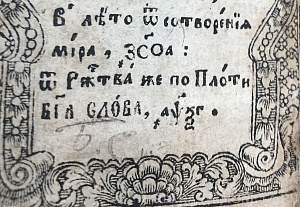 В̾ лѣто ѿ сотворенїѧ
мїра, ҂зсо҃а:
ѿ Рж҃тва же по Плоти
Бг҃а Слова, ҂аѱѯ҃г.